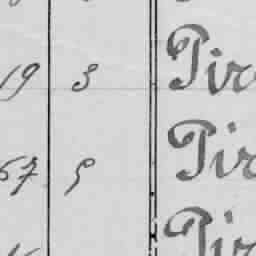 19 3 Pir
67 9 Pir
Pir